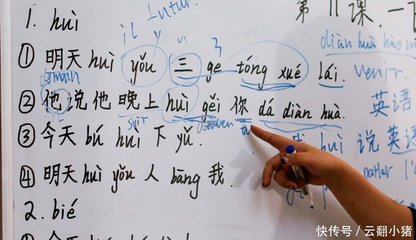 1. huì
第11课
il y futur
① 明天 huì yǒu 三 ge tóng xué lái.
venir.
diàn huà hào
② 他说他晚上 huì gěi 你 dá diàn huà.
英语
soir
③ 今天 bú huì 下 yǔ.
huì 说英语
parler
④ 明天 huì yǒu 人 bāng 我.
2. bié
快传号/云翻小猪